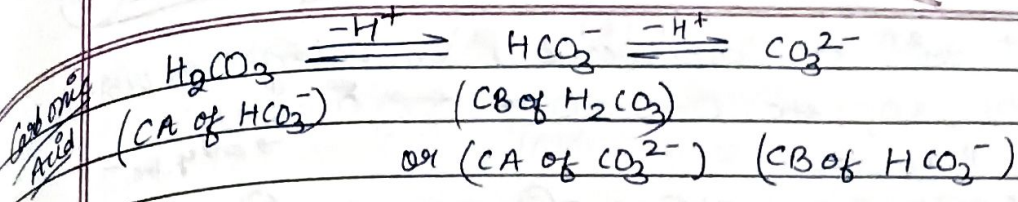 Carbonic Acid
H₂CO₃ ⇌ (−H⁺) HCO₃⁻ ⇌ (−H⁺) CO₃²⁻
(CA of HCO₃⁻) (CB of H₂CO₃)
or (CA of CO₃²⁻) (CB of HCO₃⁻)